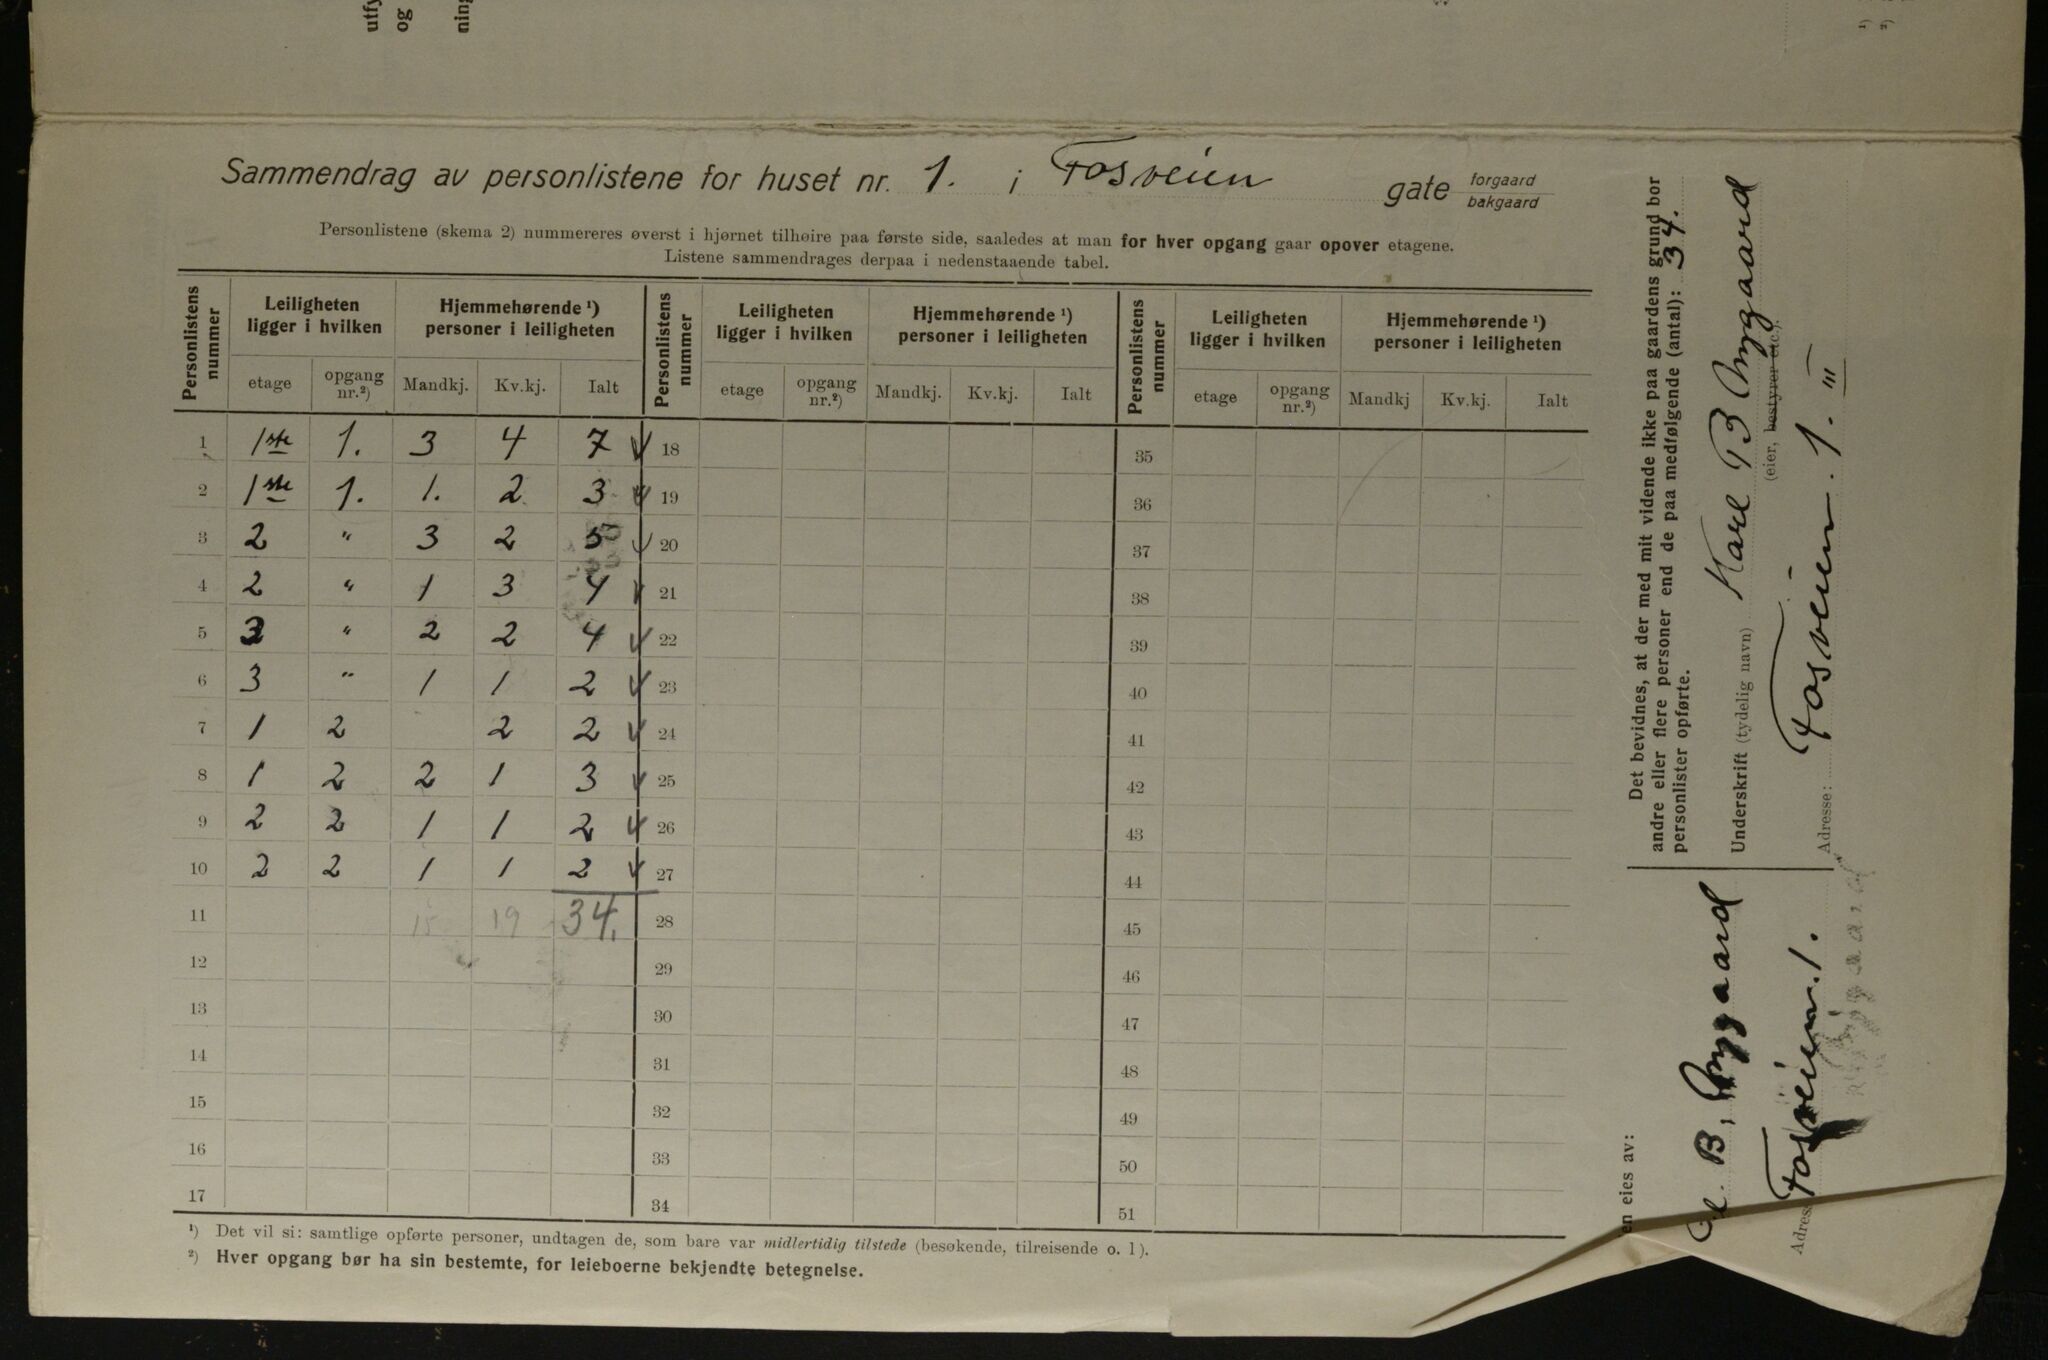 Sammendrag av personlistene for huset nr. 1. i Fosveien gate forgaard bakgaard
Personlistene (skema 2) nummereres øverst i hjørnet tilhøire paa første side, saaledes at man for hver opgang gaar opover etagene.
Listene sammendrages derpaa i nedenstaaende tabel.
Personlistens nummer | Leiligheten ligger i hvilken | Hjemmehørende ¹) personer i leiligheten | Personlistens nummer | Leiligheten ligger i hvilken | Hjemmehørende ¹) personer i leiligheten | Personlistens nummer | Leiligheten ligger i hvilken | Hjemmehørende ¹) personer i leiligheten
etage | opgang nr.²) | Mandkj. | Kv.kj. | Ialt | etage | opgang nr.²) | Mandkj. | Kv.kj. | Ialt | etage | opgang nr.²) | Mandkj | Kv.kj. | Ialt
1 | 1ste | 1. | 3 | 4 | 7 | 18 | 35
2 | 1ste | 1. | 1. | 2 | 3 | 19 | 36
3 | 2 | " | 3 | 2 | 5 | 20 | 37
4 | 2 | " | 1 | 3 | 4 | 21 | 38
5 | 3 | " | 2 | 2 | 4 | 22 | 39
6 | 3 | " | 1 | 1 | 2 | 23 | 40
7 | 1 | 2 | | 2 | 2 | 24 | 41
8 | 1 | 2 | 2 | 1 | 3 | 25 | 42
9 | 2 | 2 | 1 | 1 | 2 | 26 | 43
10 | 2 | 2 | 1 | 1 | 2 | 27 | 44
11 | | | 15 | 19 | 34. | 28 | 45
12 | 29 | 46
13 | 30 | 47
14 | 31 | 48
15 | 32 | 49
16 | 33 | 50
17 | 34 | 51
¹) Det vil si: samtlige opførte personer, undtagen de, som bare var midlertidig tilstede (besøkende, tilreisende o. l).
²) Hver opgang bør ha sin bestemte, for leieboerne bekjendte betegnelse.
Det bevidnes, at der med mit vidende ikke paa gaardens grund bor
andre eller flere personer end de paa medfølgende (antal): 34.
personlister opførte.
Underskrift (tydelig navn) Karl B Nygaard
(eier, bestyrer etc.).
Adresse: Fosveien. 1. III
en eies av:
B. Nygaard
Adres Fosveien. 1.
utfy
og
ning